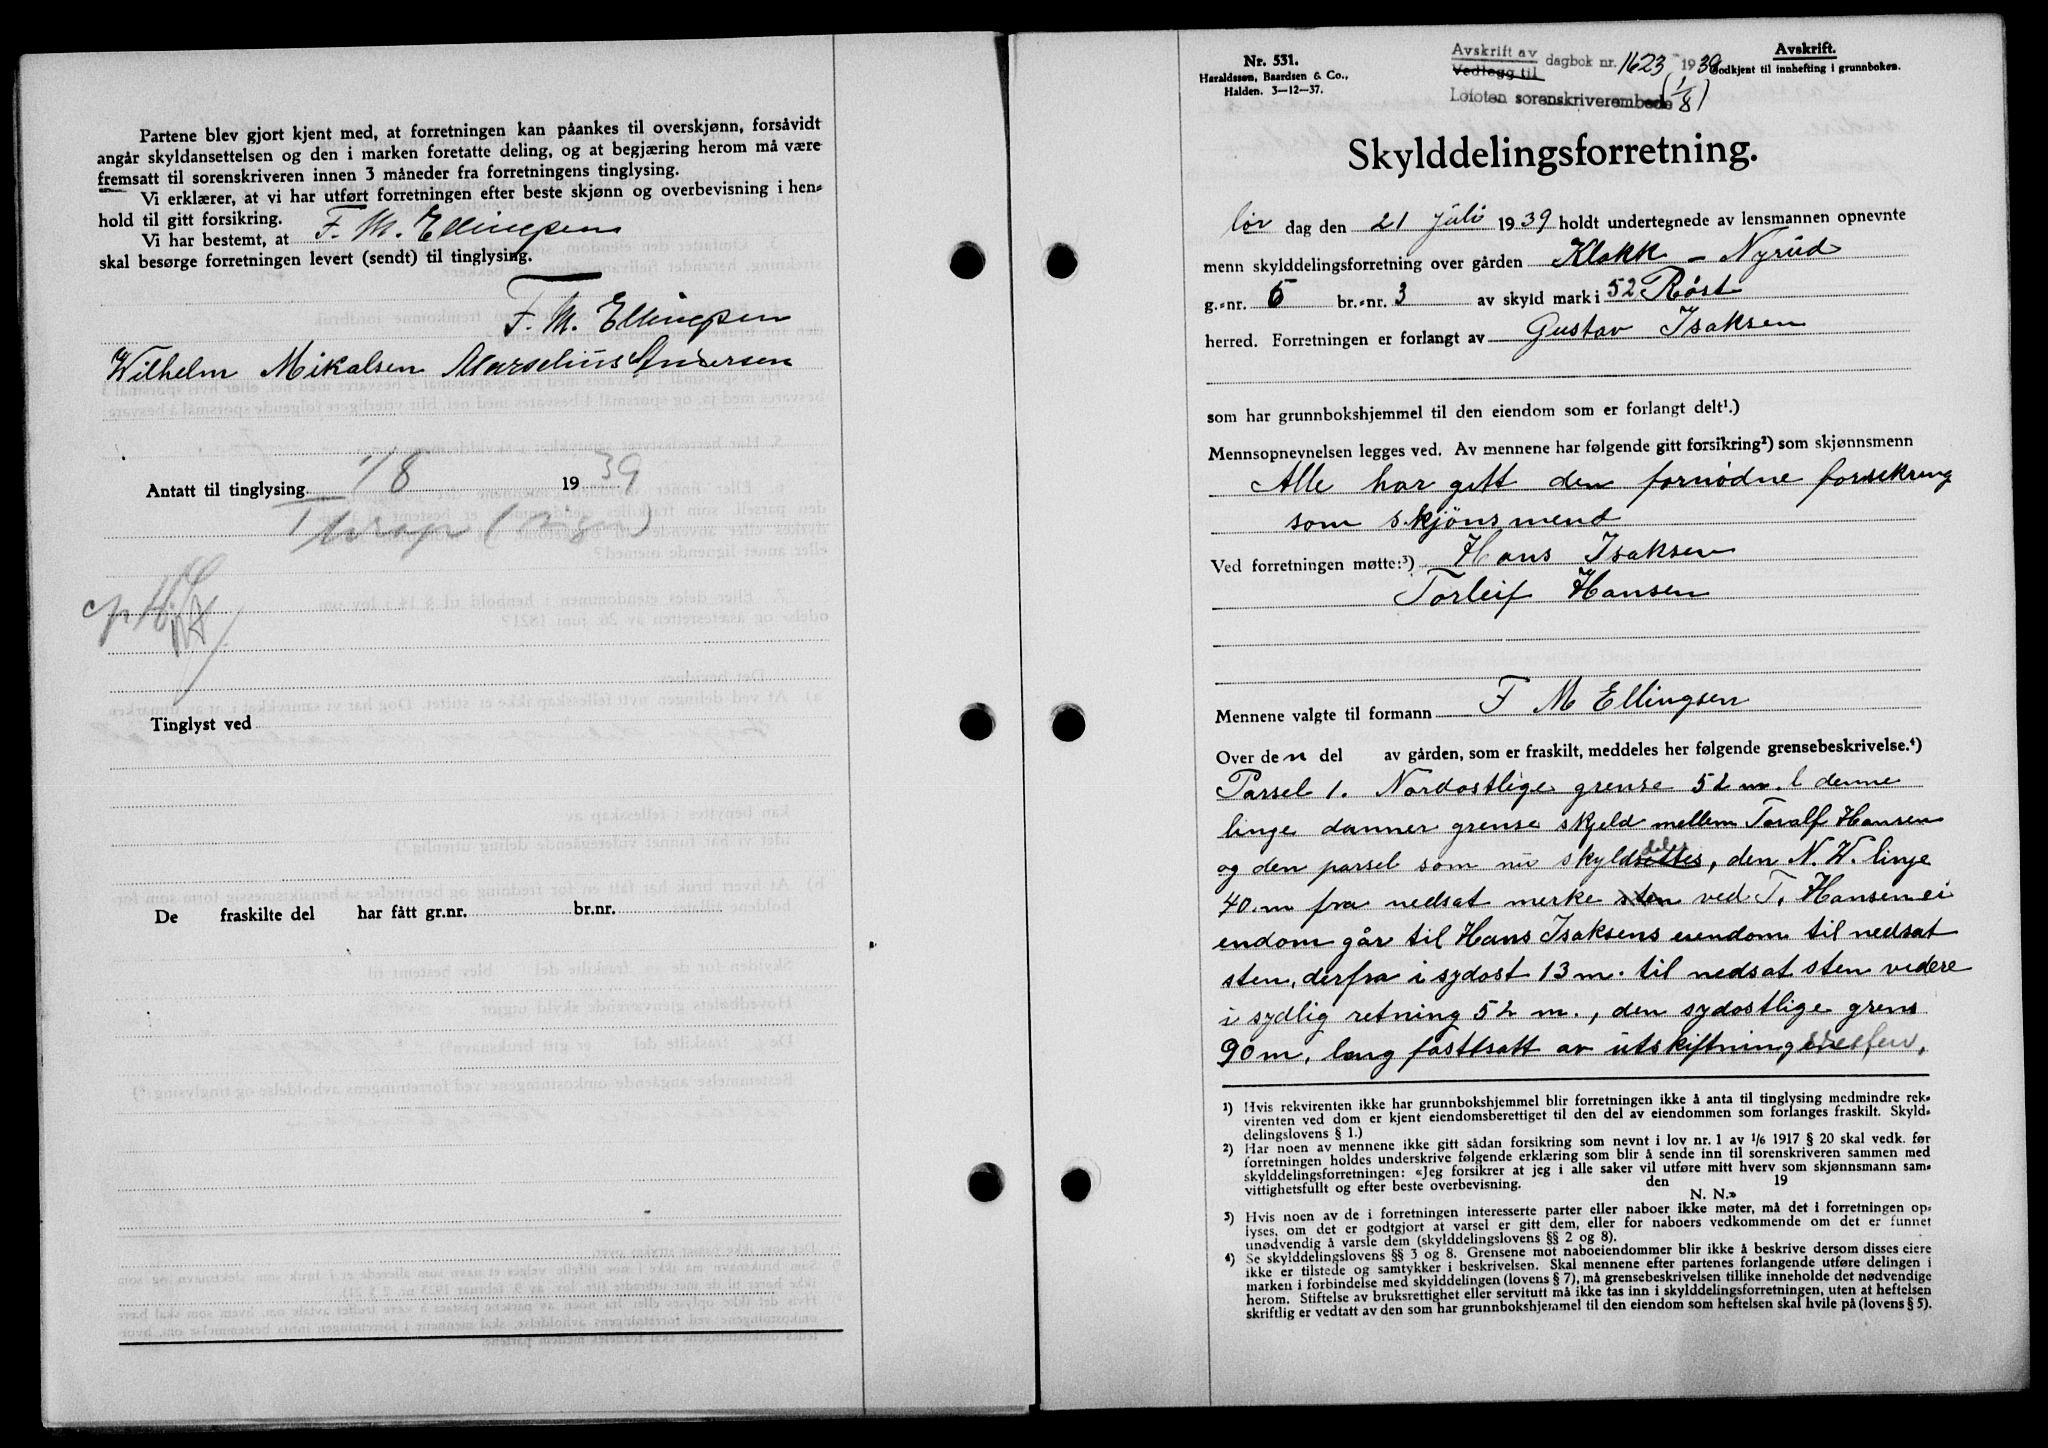 Partene blev gjort kjent med, at forretningen kan påankes til overskjønn, forsåvidt
angår skyldansettelsen og den i marken foretatte deling, og at begjæring herom må være
fremsatt til sorenskriveren innen 3 måneder fra forretningens tinglysing.
Vi erklærer, at vi har utført forretningen efter beste skjønn og overbevisning i hen-
hold til gitt forsikring.
Vi har bestemt, at F. M. Ellingsen
skal besørge forretningen levert (sendt) til tinglysing.
F. M. Ellingsen
Wilhelm Mikalsen Marselius Andersen
Antatt til tinglysing 1/8 1939
Tinglyst ved
De fraskilte del har fått gr.nr. br.nr.
Nr. 531.
Haraldssøn, Baardsen & Co.,
Halden. 3-12-37.
Avskrift av
Vedlegg til dagbok nr. 1623 1939
Lofoten sorenskriverembede (1/8)
Avskrift.
Godkjent til innhefting i grunnboken.
Skylddelingsforretning.
lør dag den 21 juli 1939 holdt undertegnede av lensmannen opnevnte
menn skylddelingsforretning over gården Klakk - Nyrud
g.-nr. 5 br.-nr. 3 av skyld mark i 52 Røst
herred. Forretningen er forlangt av Gustav Isaksen
som har grunnbokshjemmel til den eiendom som er forlangt delt¹.)
Mennsopnevnelsen legges ved. Av mennene har følgende gitt forsikring²) som skjønnsmenn
Alle har gitt den fornødne forsekring
som skjönsmend
Ved forretningen møtte:³) Hans Isaksen
Torleif Hansen
Mennene valgte til formann F M Ellingsen
Over den del av gården, som er fraskilt, meddeles her følgende grensebeskrivelse.⁴)
Parsel 1. Nordostlige grense 52 m. l denne
linje danner grense skjeld mellem Toralf Hansen
og den parsel som nu skyldsættes deles, den N. W. linje
40 m fra nedsat merke sten ved T. Hansen ei
endom går til Hans Isaksens eiendom til nedsat
sten, derfra i sydost 13 m. til nedsat sten videre
i sydlig retning 52 m., den sydostlige grens
90 m. lang fasttsatt av utskiftning
¹) Hvis rekvirenten ikke har grunnbokshjemmel blir forretningen ikke å anta til tinglysing medmindre rek-
virenten ved dom er kjent eiendomsberettiget til den del av eiendommen som forlanges fraskilt. Skyld-
delingslovens § 1.)
²) Har noen av mennene ikke gitt sådan forsikring som nevnt i lov nr. 1 av 1/6 1917 § 20 skal vedk. før
forretningen holdes underskrive følgende erklæring som blir å sende inn til sorenskriveren sammen med
skylddelingsforretningen: «Jeg forsikrer at jeg i alle saker vil utføre mitt hverv som skjønnsmann sam-
vittighetsfullt og efter beste overbevisning. den 19
N. N.»
³) Hvis noen av de i forretningen interesserte parter eller naboer ikke møter, må det i forretningen op-
lyses, om det er godtgjort at varsel er gitt dem, eller for naboers vedkommende om det er funnet
unødvendig å varsle dem (skylddelingslovens §§ 2 og 8).
⁴) Se skylddelingslovens §§ 3 og 8. Grensene mot naboeiendommer blir ikke å beskrive dersom disses eiere
ikke er tilstede og samtykker i beskrivelsen. Skal mennene efter partenes forlangende utføre delingen i
marken i forbindelse med skylddelingen (lovens § 7), må grensebeskrivelsen tillike inneholde det nødvendige
herom. Stiftelse av bruksrettighet eller servitutt må ikke tas inn i skylddelingsforretningen, uten at heftelsen
skriftlig er vedtatt av den som har grunnbokshjemmel til den eiendom som heftelsen skal hvile på (lovens § 5).